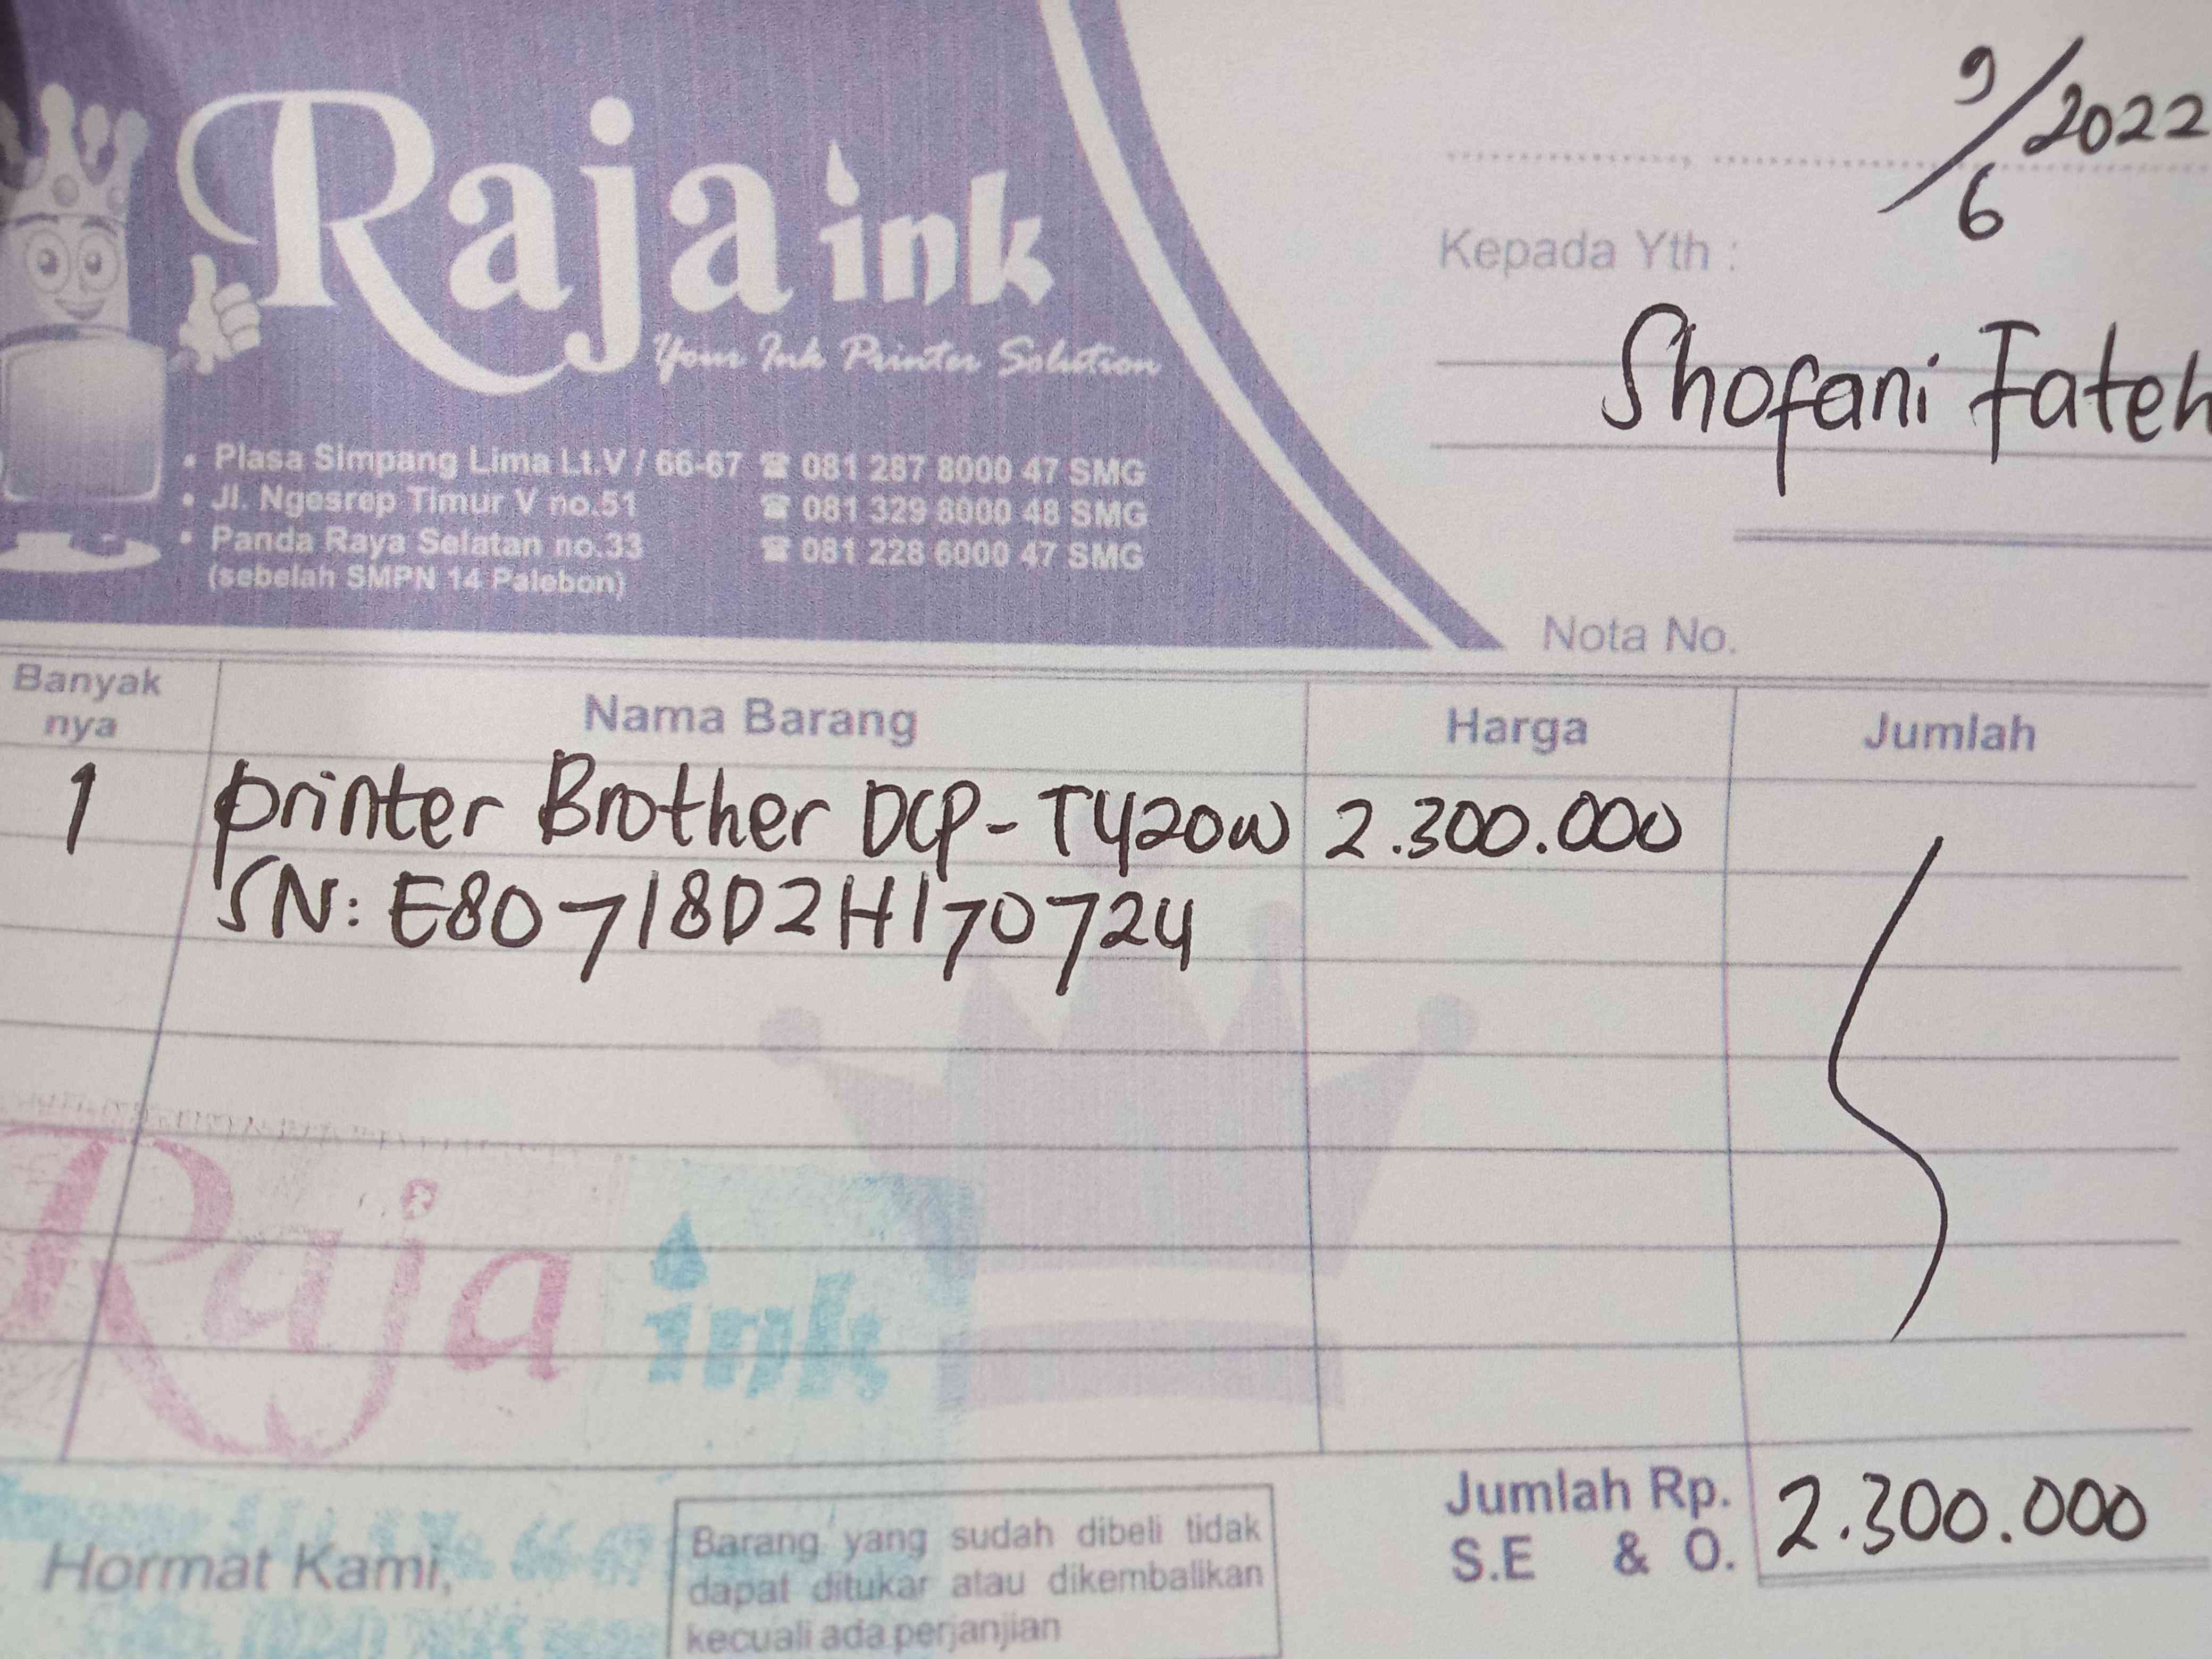 Raja ink
Your Ink Printer Solution
• Plasa Simpang Lima Lt.V / 66-67 ☎ 081 287 8000 47 SMG
• Jl. Ngesrep Timur V no.51 ☎ 081 329 8000 48 SMG
• Panda Raya Selatan no.33 ☎ 081 228 6000 47 SMG
(sebelah SMPN 14 Palebon)
9/6/2022
Kepada Yth :
Shofani Fateh
Nota No.
Banyak
nya
Nama Barang
Harga
Jumlah
1 printer Brother DCP-T420W 2.300.000
SN: E80718D2H170724
Raja ink
66-67
Hormat Kami,
Barang yang sudah dibeli tidak
dapat ditukar atau dikembalikan
kecuali ada perjanjian
Jumlah Rp. 2.300.000
S.E & O.